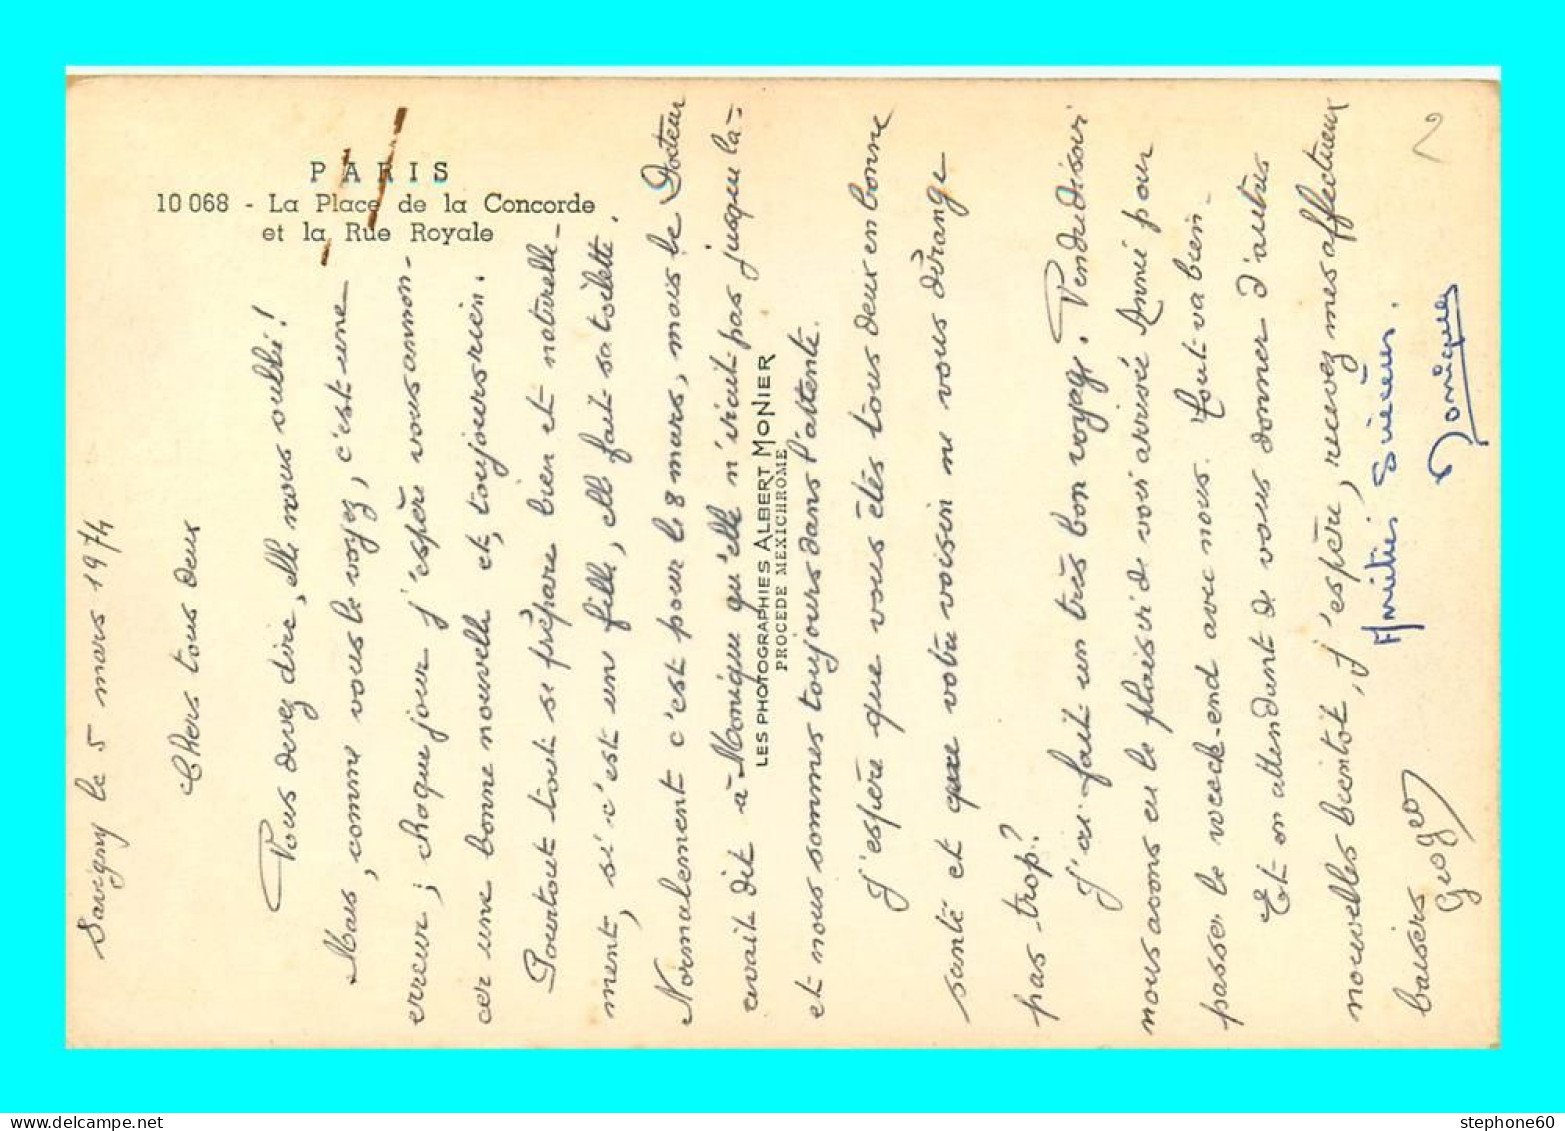 PARIS
10 068 - La Place de la Concorde
et la Rue Royale
LES PHOTOGRAPHIES ALBERT MONIER
PROCEDE MEXICHROME
2
Savigny le 5 mars 1974
Chers tous deux
Vous devez dire, elle nous oublie!
Mais, comme vous le voyez, c'est une
erreur; chaque jour j'espère vous annon-
cer une bonne nouvelle et, toujours rien.
Pourtant tout se prépare bien et naturelle-
ment, si c'est une fille, elle fait sa toilette.
Normalement c'est pour le 8 mars, mais le Docteur
avait dit à Monique qu'elle n'irait pas jusque là-
et nous sommes toujours dans l'attente.
J'espère que vous êtes tous deux en bonne
santé et que votre voisin ne vous dérange
pas trop?
J'ai fait un très bon voyage. Vendredi soir
nous avons eu le plaisir de voir arrivée Annie pour
passer le week-end avec nous. Tout va bien.
Et en attendant de vous donner d'autres
nouvelles bientôt, j'espère, recevez mes affectueux
baisers
Amitiés Sincères.
Monique